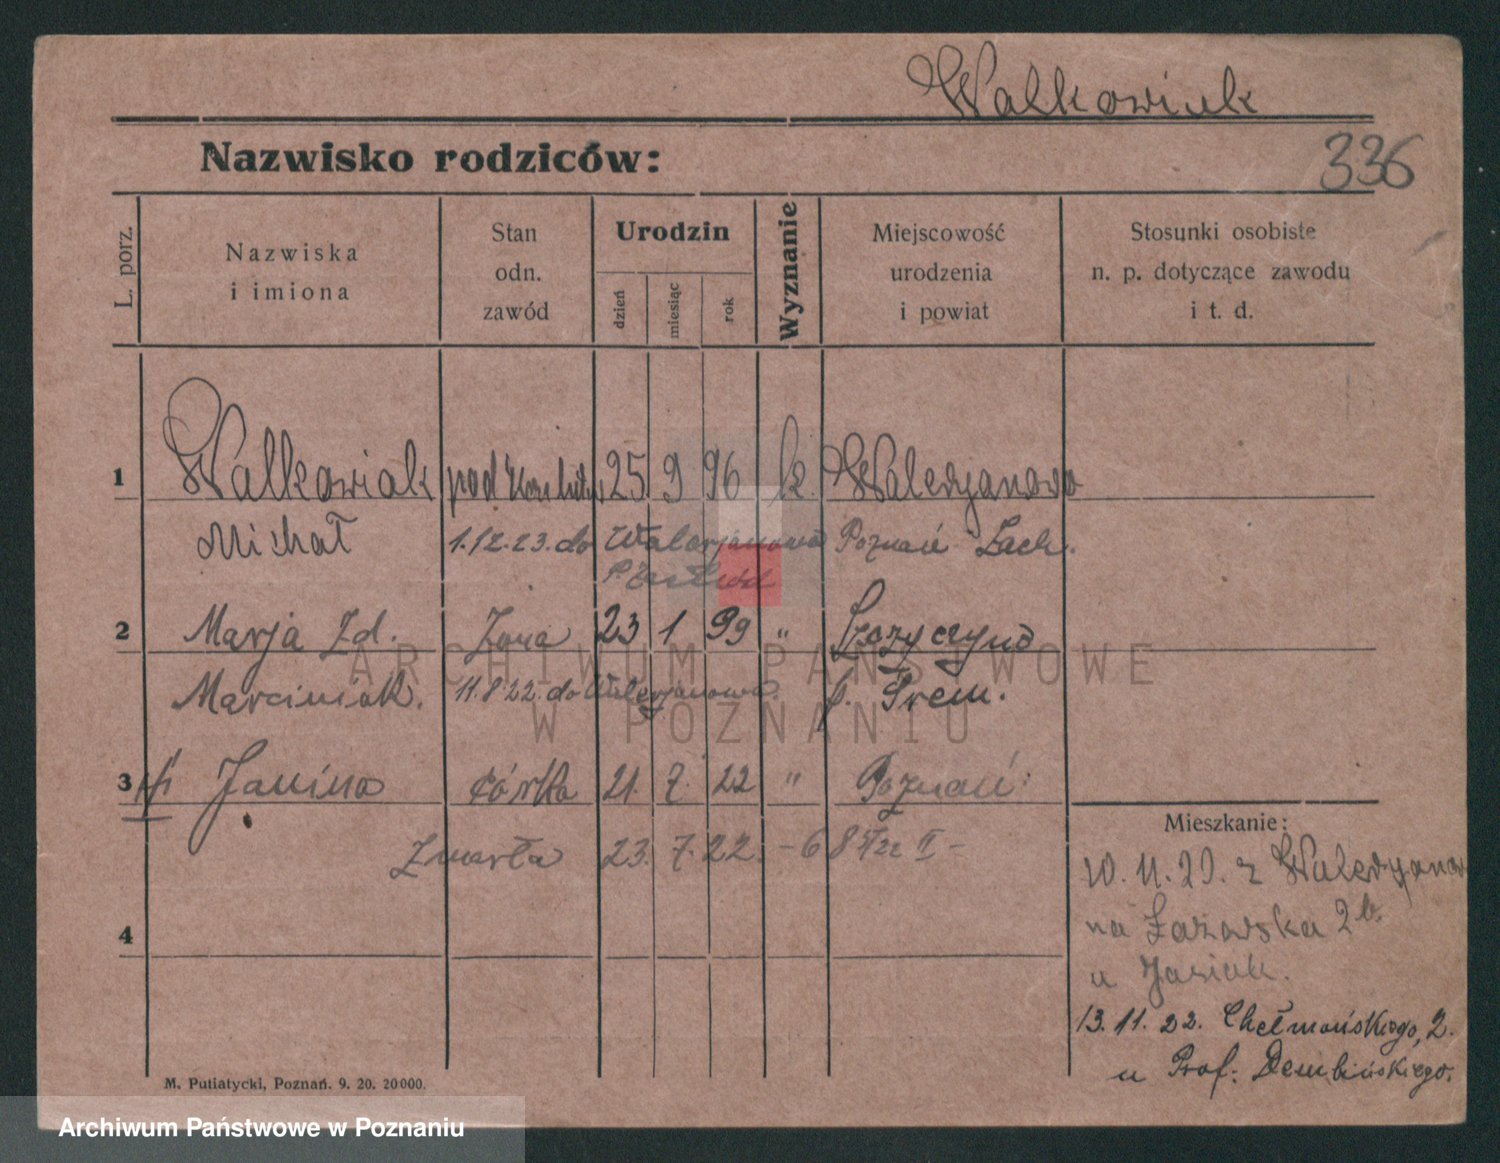 Walkowiak
Nazwisko rodziców:
336
L. porz.
Nazwiska
i imiona
Stan
odn.
zawód
Urodzin
dzień
miesiąc
rok
Wyznanie
Miejscowość
urodzenia
i powiat
Stosunki osobiste
n. p. dotyczące zawodu
i t. d.
1 Walkowiak 25 9 96 k. Waleryanowo
Michał 1.12.23. do Walerjanowo Poznań Zach.
2 Marja Zd. Żona 23 1 99 „ Szczyczyno
Marciniak. 11.8 22. do Walerjanowo. p. Śrem.
3 Janina córka 21. 7. 22 „ Poznań.
Zmarła 23. 7. 22.
4
Mieszkanie:
10. 11. 20. z Waleryanow
na Łazarska 2b.
u Jasiak.
13. 11. 22. Chełmońskiego, 2.
u Prof. Dembińskiego.
M. Putiatycki, Poznań. 9. 20. 20000.
ARCHIWUM PAŃSTWOWE
W POZNANIU
Archiwum Państwowe w Poznaniu